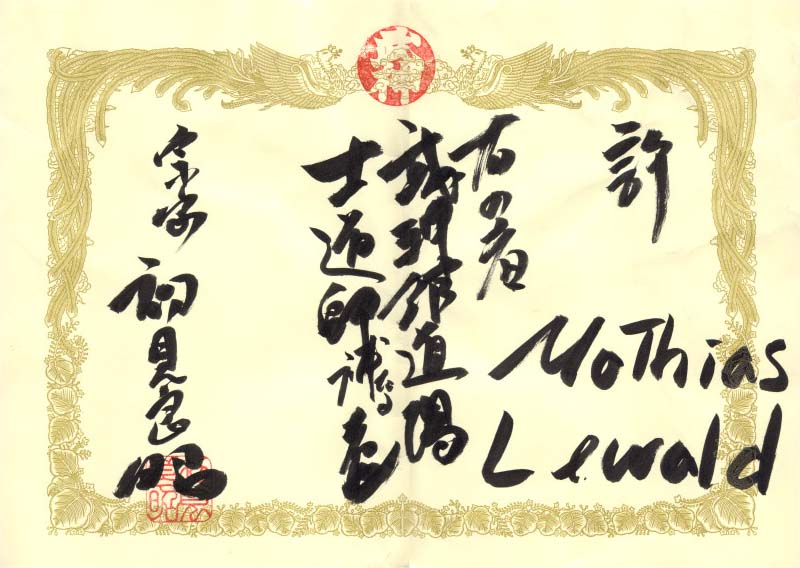 許
MaThias
Lewald
右の者
武神館道場
士道師補
宗家
初見良昭